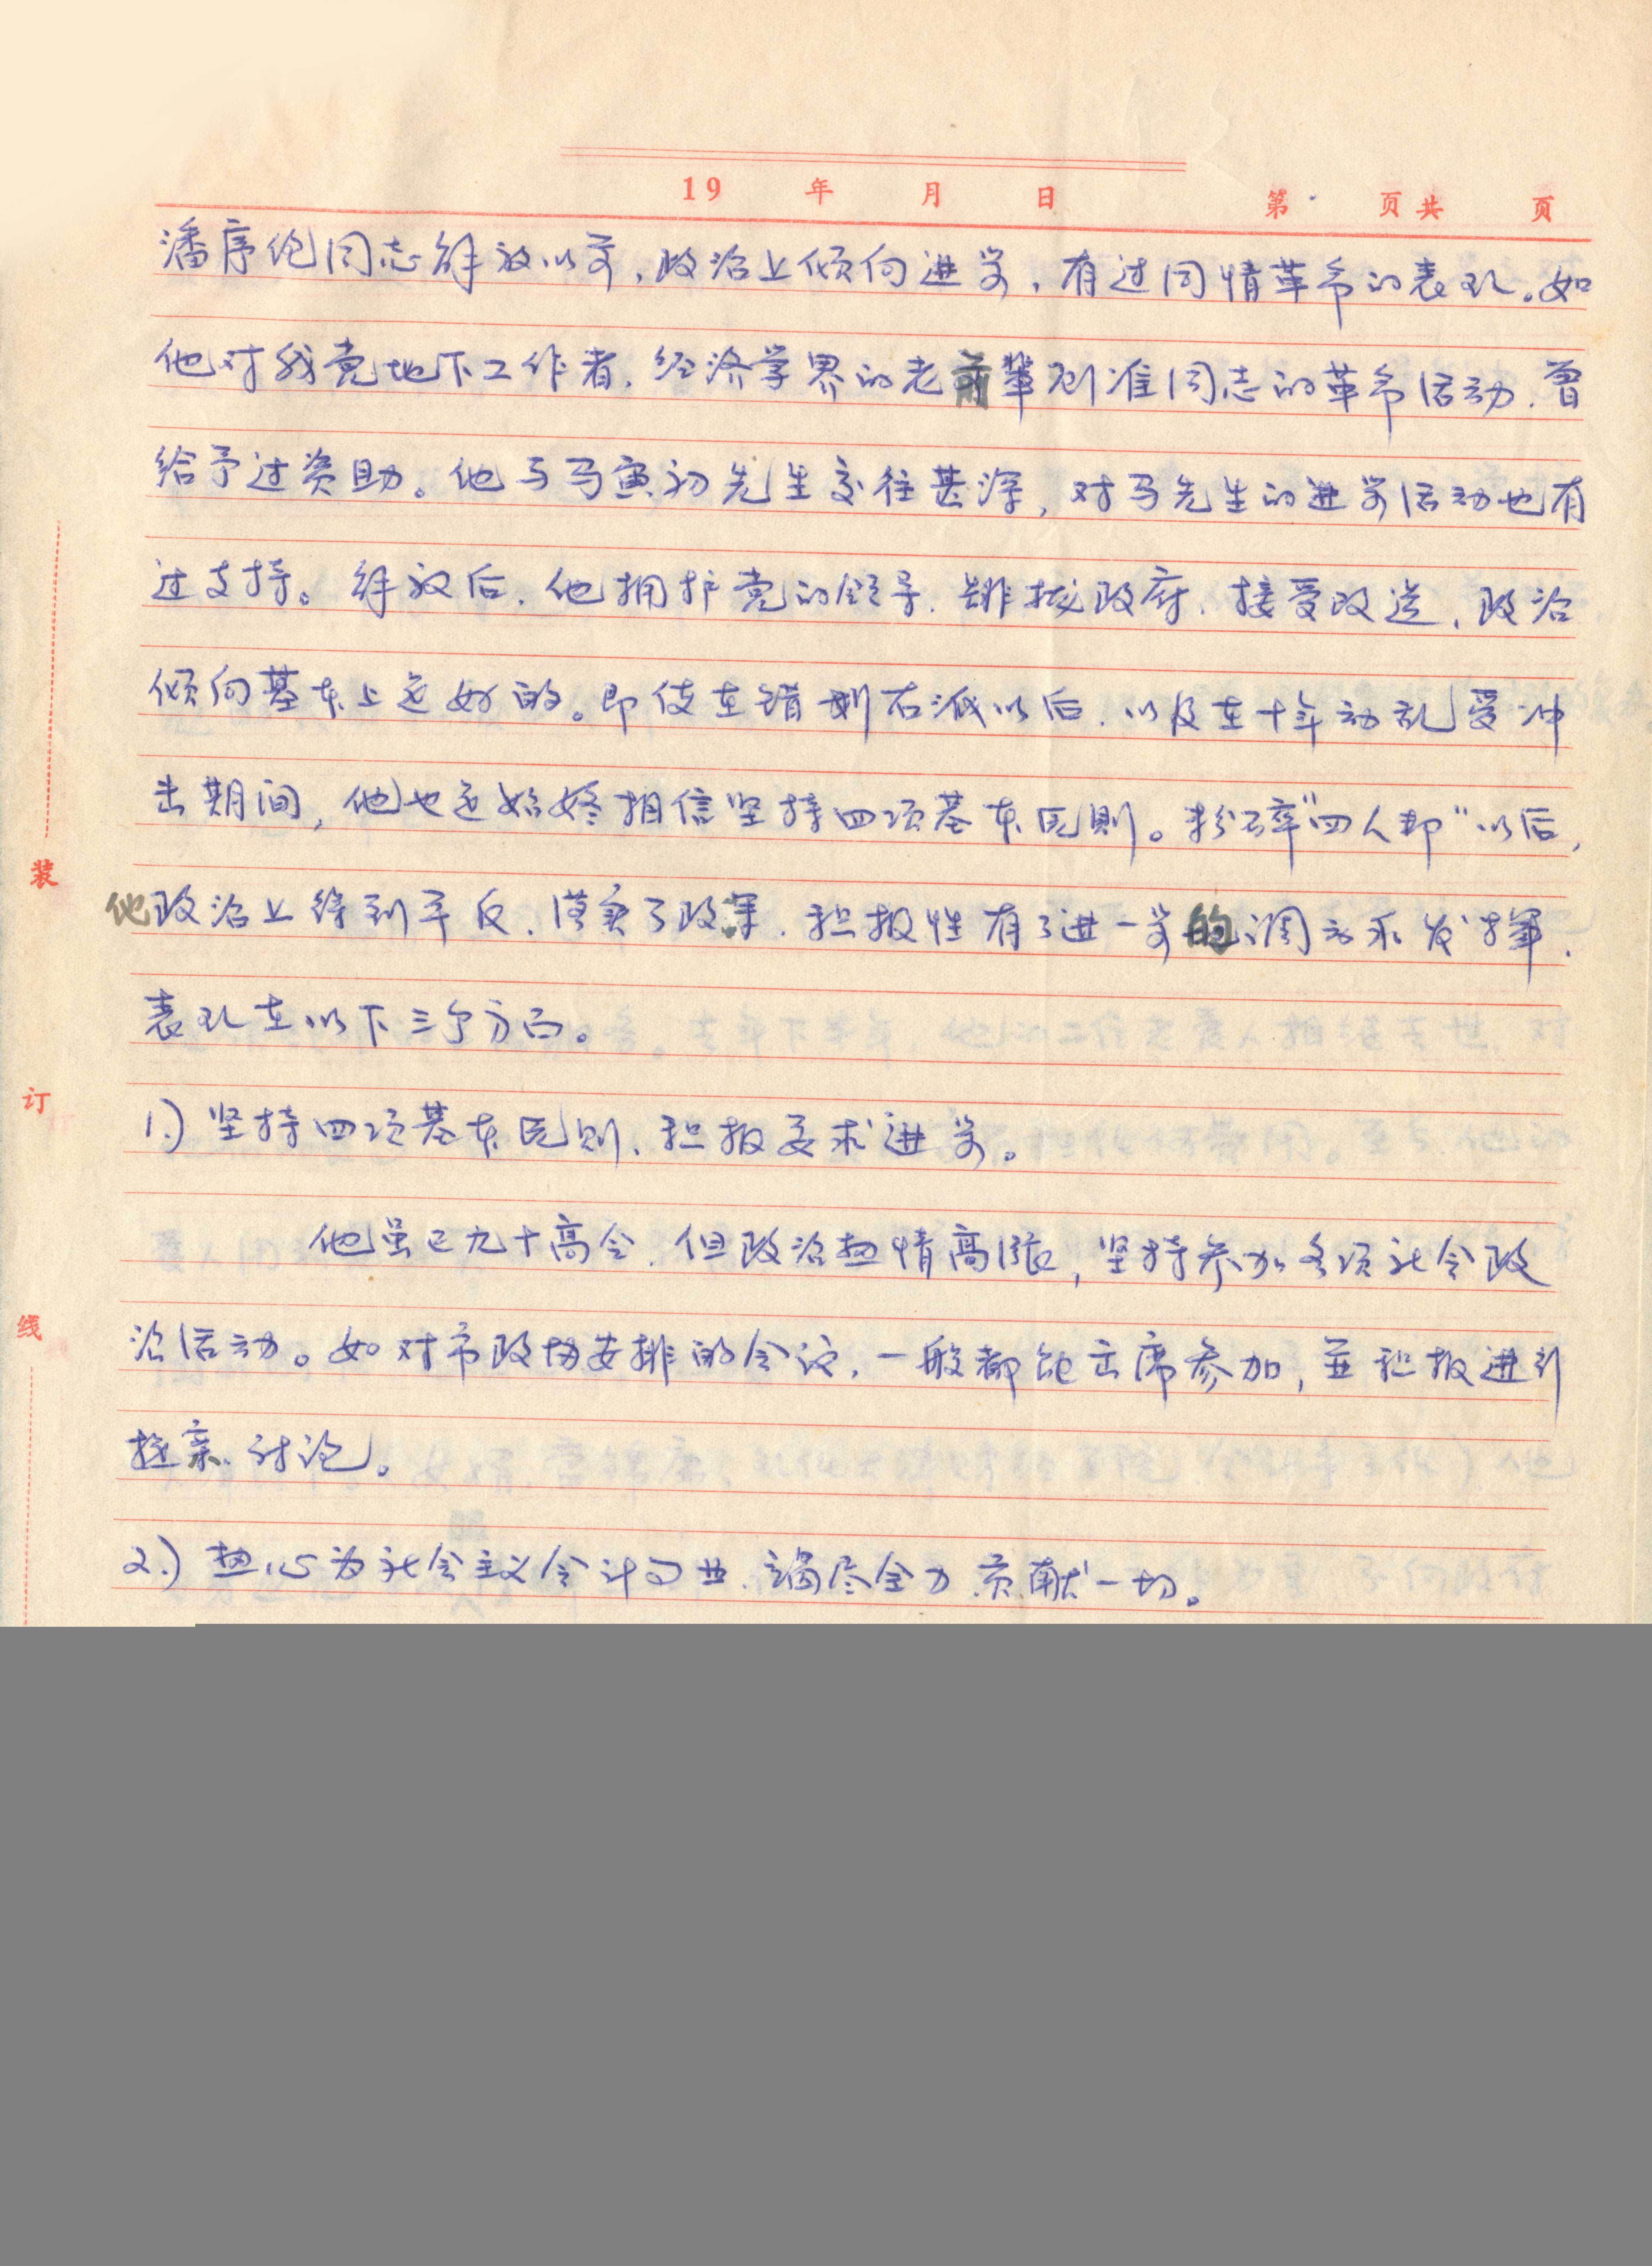 19 年 月 日 第 页共 页
潘序伦同志解放以前,政治上倾向进步,有过同情革命的表现。如
他对我党地下工作者、经济学界的老前辈 准同志的革命活动,曾
给予过资助。他与马寅初先生交往甚深,对马先生的进步活动也有
过支持。解放后,他拥护党的领导,靠拢政府,接受改造,政治
倾向基本上是好的。即使在错划右派以后,以及在十年动乱受冲
击期间,他也是始终相信坚持四项基本原则。粉碎“四人邦”以后,
他政治上得到平反,落实了政策,积极性有了进一步的调动和发挥,
表现在以下三个方面。
1.) 坚持四项基本原则、积极要求进步。
他虽已九十高令,但政治热情高涨,坚持参加各项社会政
治活动。如对市政协安排的会议,一般都能出席参加,並积极进行
提案、讨论。
2.) 热心为社会主义会计事业,竭尽全力,贡献一切。
装
订
线